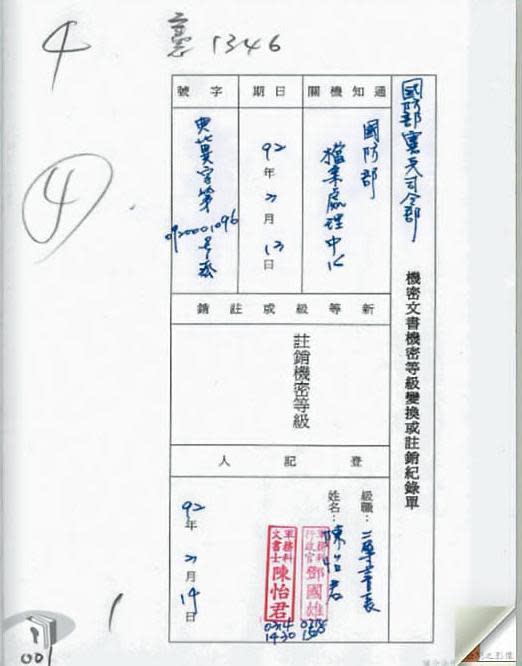 憲 1346
4
④
國防部憲兵司令部
機密文書機密等級變換或註銷紀錄單
通知機關
國防部
檔案處理中心
日期
92年 月13日
字號
典萁字第
0920001096
號函
新等級或註銷
註銷機密等級
登記人
級職：
姓名：陳怡君
軍務科
行政官 鄧國雄
軍務科
文書士 陳怡君
0314
1430
92年 月14日
001